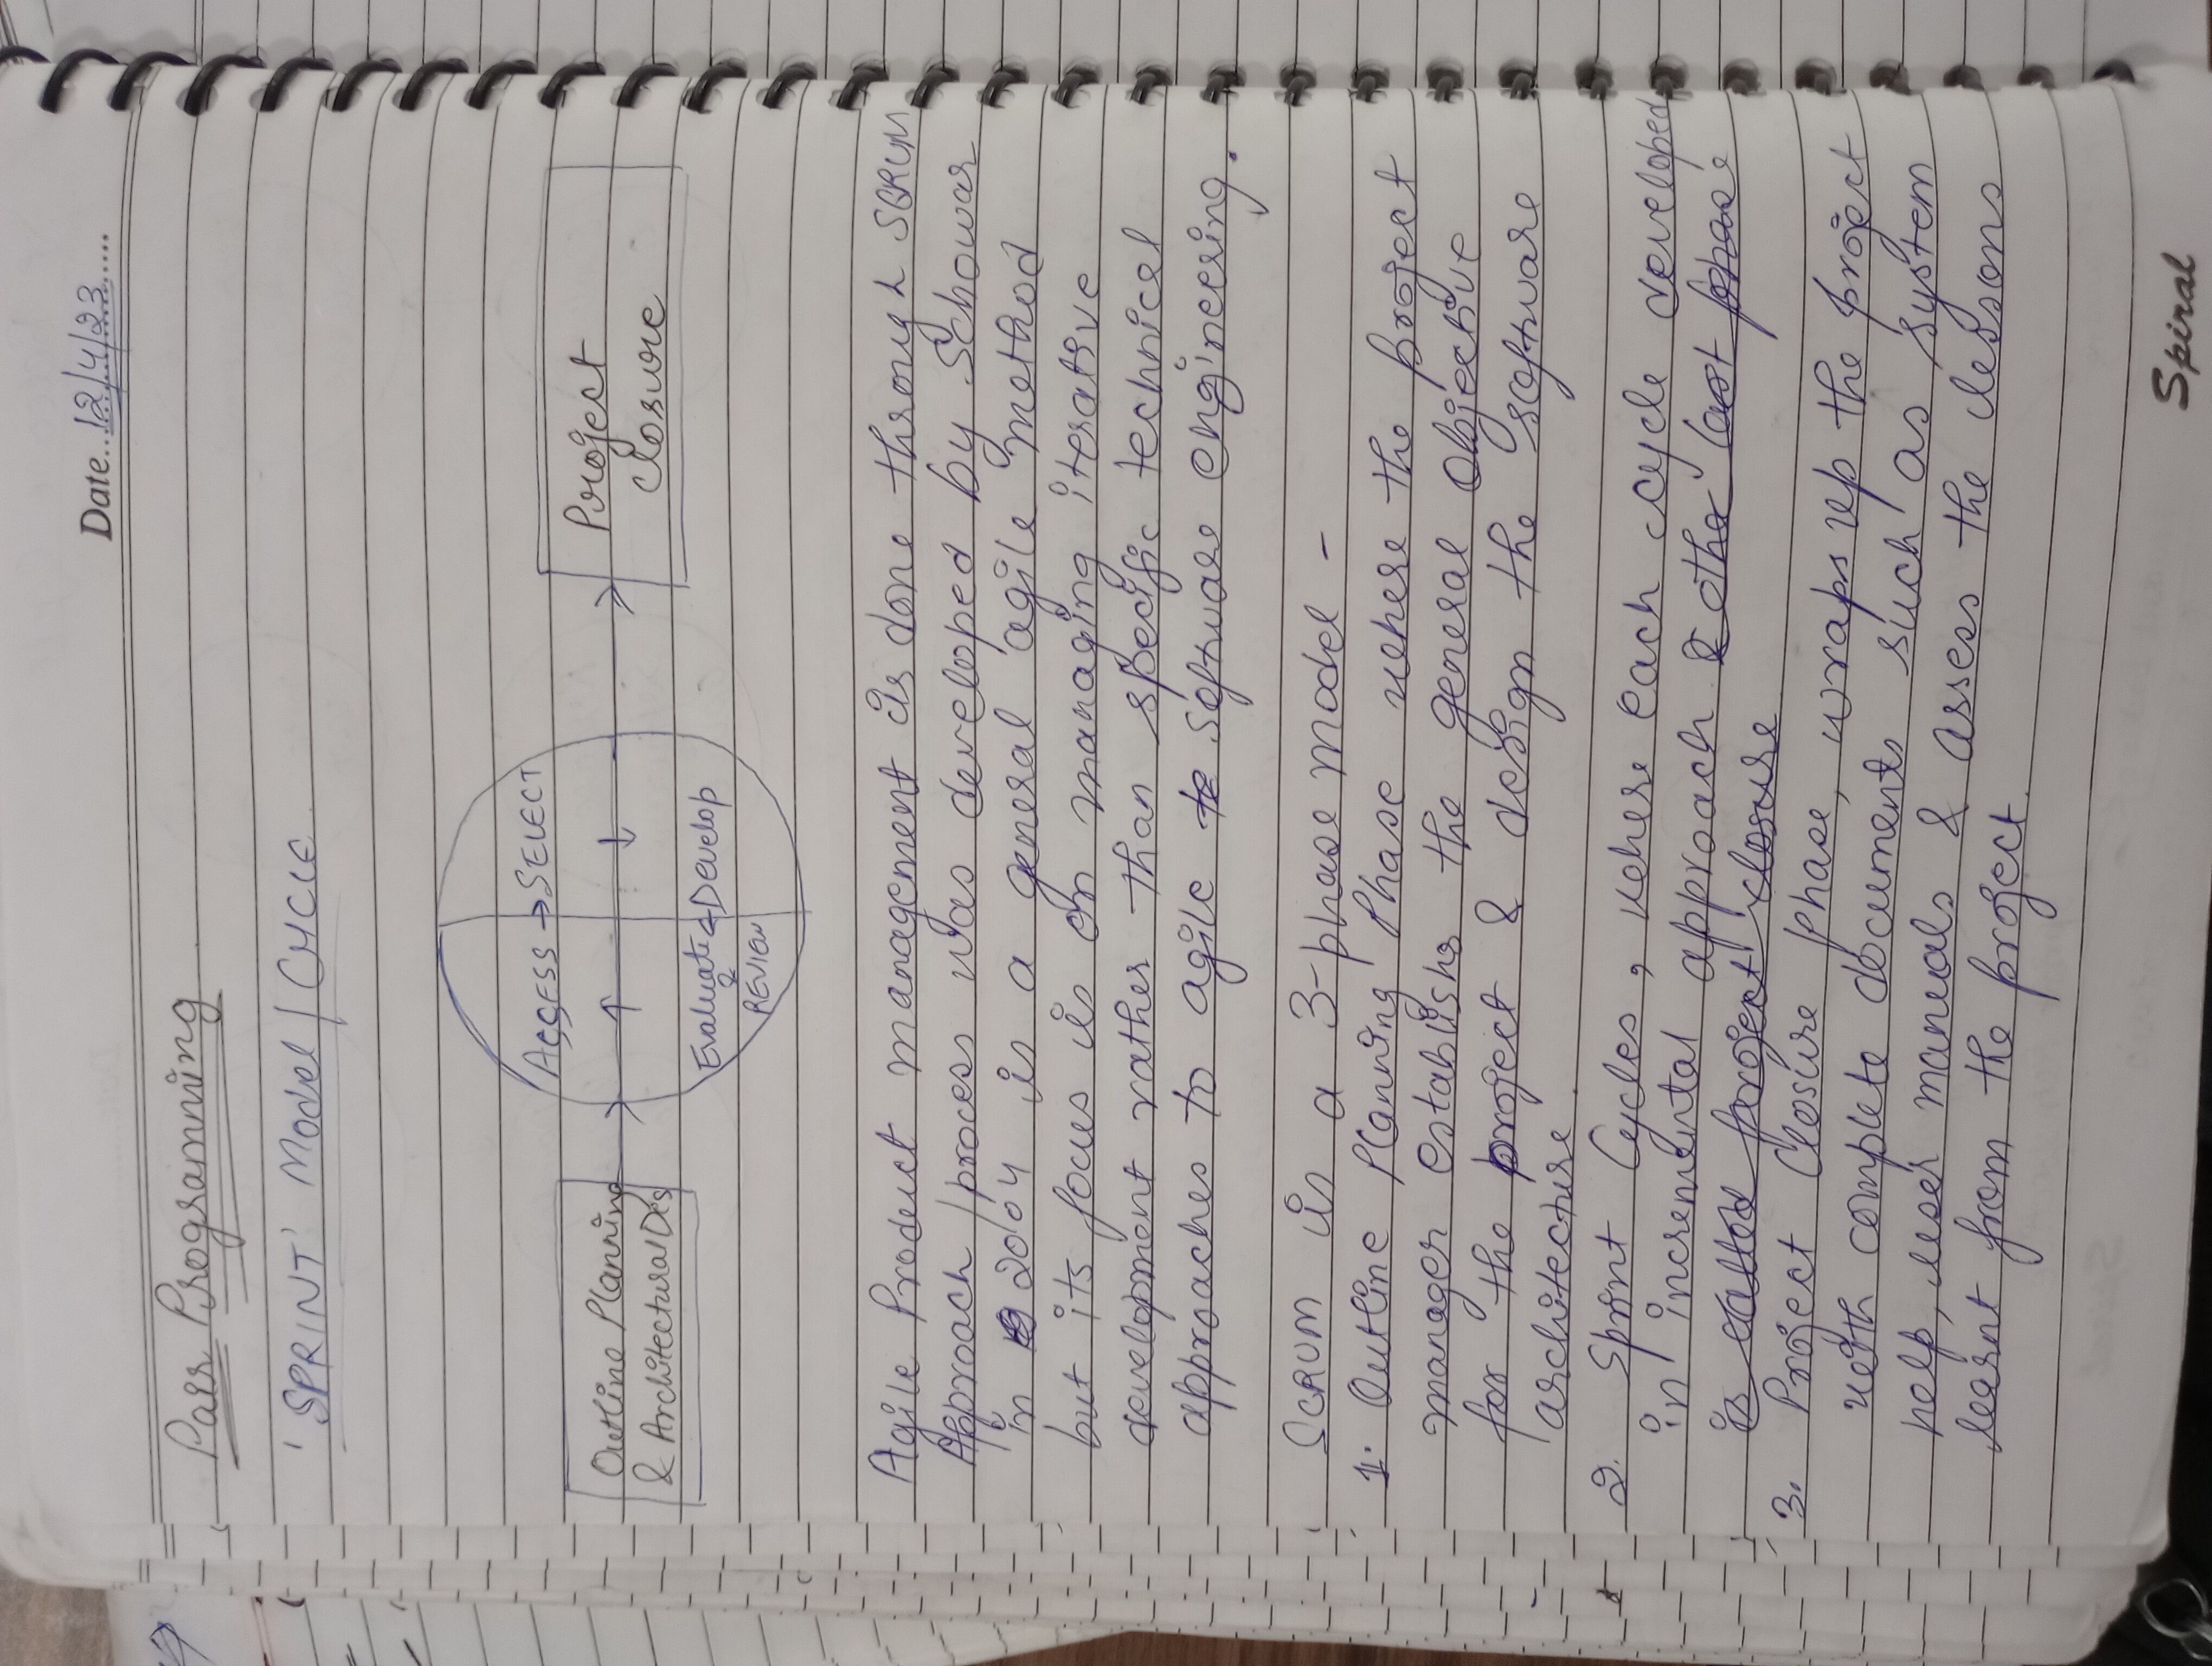 Date..12/4/23......
Pair Programming
'SPRINT' Model / CYCLE
Outline Planning
& Architectural Des
ACCESS → SELECT
Evaluate ← Develop
&
REVIEW
Project
closure
Agile Product management is done through SCRUM
Approach / process was developed by Schowar
in 2004 is a general agile method
but its focus is on managing iterative
development rather than specific technical
approaches to agile software engineering.
Scrum is a 3-phase model -
1. Outline Planning Phase where the project
manager establishs the general objective
for the project & design the software
architecture.
2. Sprint Cycles, where each cycle developed
in incremental approach & the last phase
is called project closure
3. Project Closure phase, wraps up the project
with complete documents such as system
help, user manuals & asses the lessons
learnt from the project.
Spiral